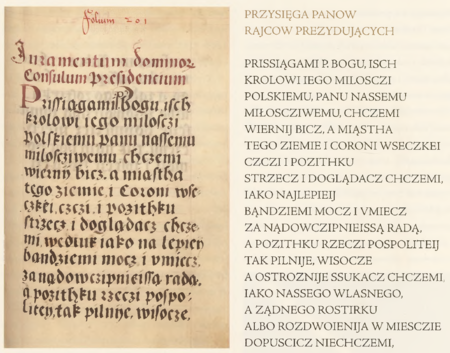 Folium 201
Iuramentum dominor
Consulum presidencium
Prissiągami Bogu isch
krolowi iego miloscźi
polskiemu panu nassemu
milosciwemu, chczemi
wierny bicz, a miastha
tego ziemie, i Coroni wse
czkei, czci, i pozithku
strzecz i doglądacz chcze
mi, wedluk iako na lepiey
bandziemi mocz i vmiecz,
za nadowczipnieissą radą,
a pozithku rzeczi pospo
litey, tak pilnye, wisocze,
PRZYSIĘGA PANOW
RAJCOW PREZYDUJĄCYCH
PRISSIĄGAMI P. BOGU, ISCH
KROLOWI IEGO MILOSCZI
POLSKIEMU, PANU NASSEMU
MIŁOSCZIWEMU, CHCZEMI
WIERNIJ BICZ, A MIĄSTHA
TEGO ZIEMIE I CORONI WSECZKEI
CZCZI I POZITHKU
STRZECZ I DOGLĄDACZ CHCZEMI,
IAKO NAJLEPIEIJ
BĄNDZIEMI MOCZ I VMIECZ
ZA NĄDOWCZIPNIEISSĄ RADĄ,
A POZITHKU RZECZI POSPOLITEIJ
TAK PILNIJE, WISOCZE
A OSTROZNIJE SSUKACZ CHCZEMI,
IAKO NASSEGO WLASNEGO,
A ZĄDNEGO ROSTIRKU
ALBO ROZDWOIENIJA W MIESCZIE
DOPUSCICZ NIECHCZEMI,